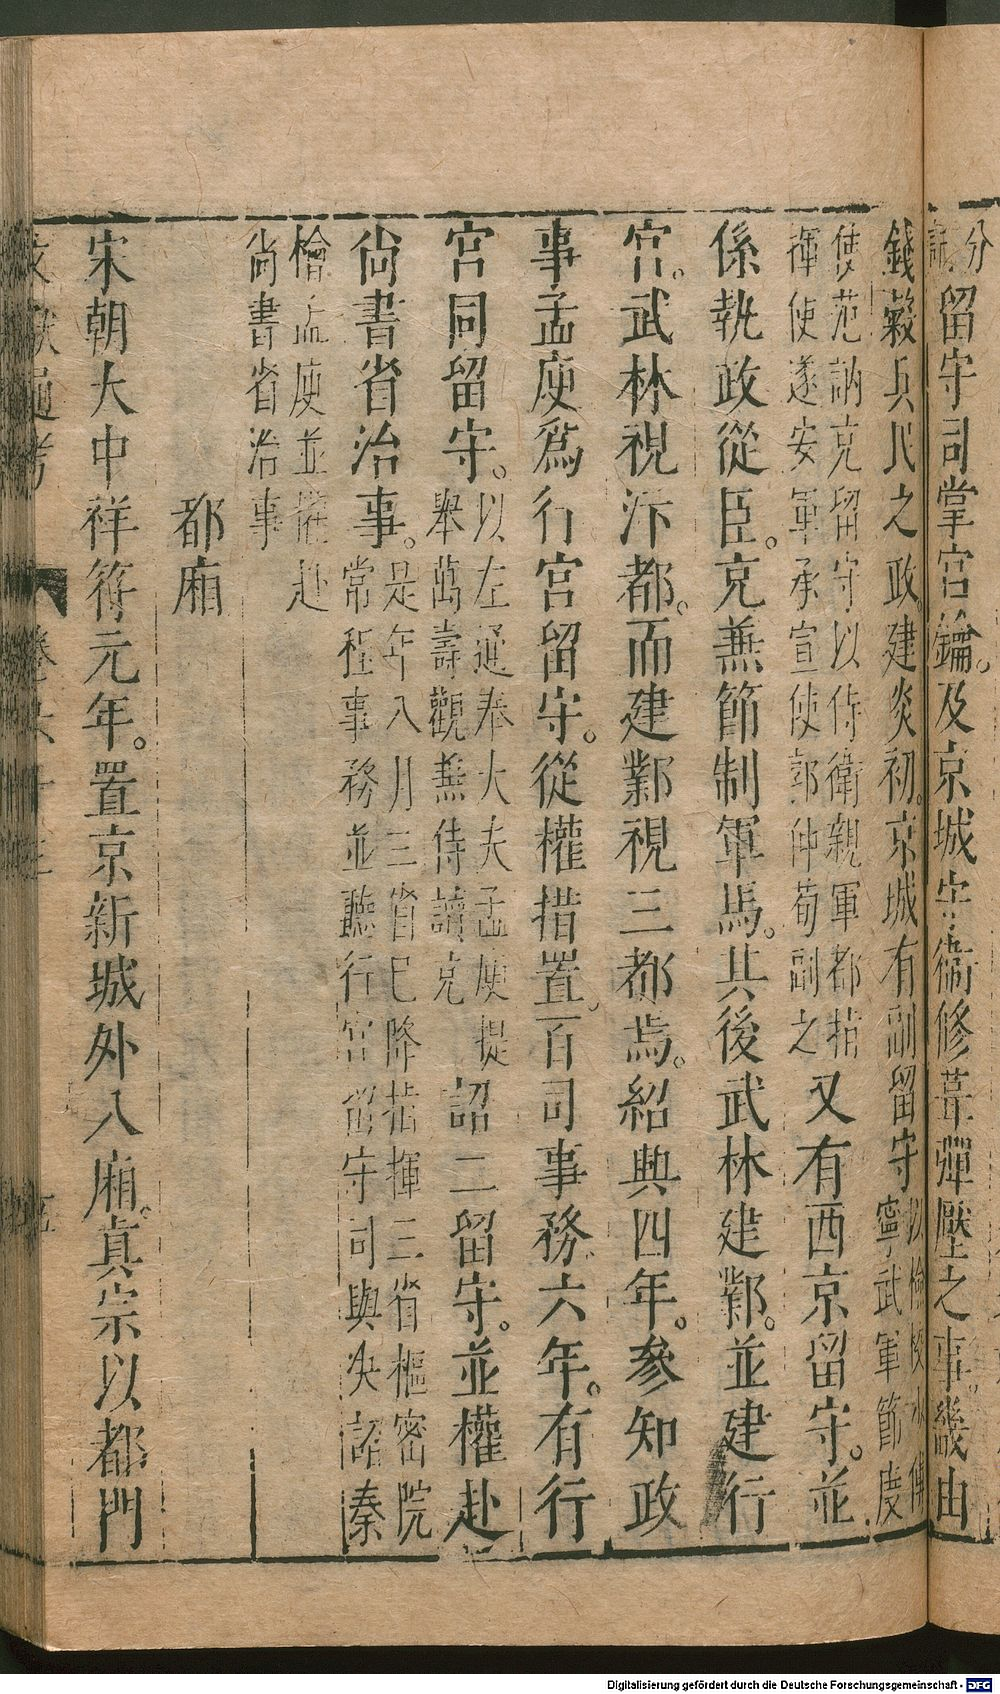 分
留守司掌宮鑰。及京城守衞修葺彈壓之事。畿甸
錢榖兵民之政。建炎初。京城有副留守以檢校少傅
寧武軍節度
使范訥充留守以侍衛親軍都指
揮使遂安軍承宣使郭仲荀副之又有西京留守。並
係執政從臣。克兼節制軍馬。其後武林建鄴。並建行
宮。武林視汴都。而建鄴視三都焉。紹興四年。參知政
事孟庾爲行宮留守。從權措置百司事務六年。有行
宮同留守。以左通奉大夫孟庾提
舉萬壽觀兼侍讀克詔二留守。並權赴
尚書省治事。是年八月三省已降指揮三省樞密院
常程事務並聽行宮留守司與决詔秦
檜孟庾並權赴
尚書省治事
都廂
宋朝大中祥符元年。置京新城外八廂。真宗以都門
文獻通考 卷六十三 五
Digitalisierung gefördert durch die Deutsche Forschungsgemeinschaft - DFG